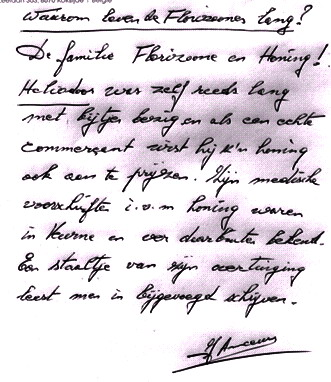 8670 Koksijde België
Waarom leven de Florizoones lang?
De familie Florizoone en Honing!
Heliodoor was zelf reeds lang
met bijtjes bezig en als een echte
commerçant wist hij z'n honing
ook aan te prijzen. Zijn medische
voorschriften i.v.m honing waren
in Veurne en ver daarbuiten bekend.
Een staaltje van zijn overtuiging
leest men in bijgevoegd schrijven.